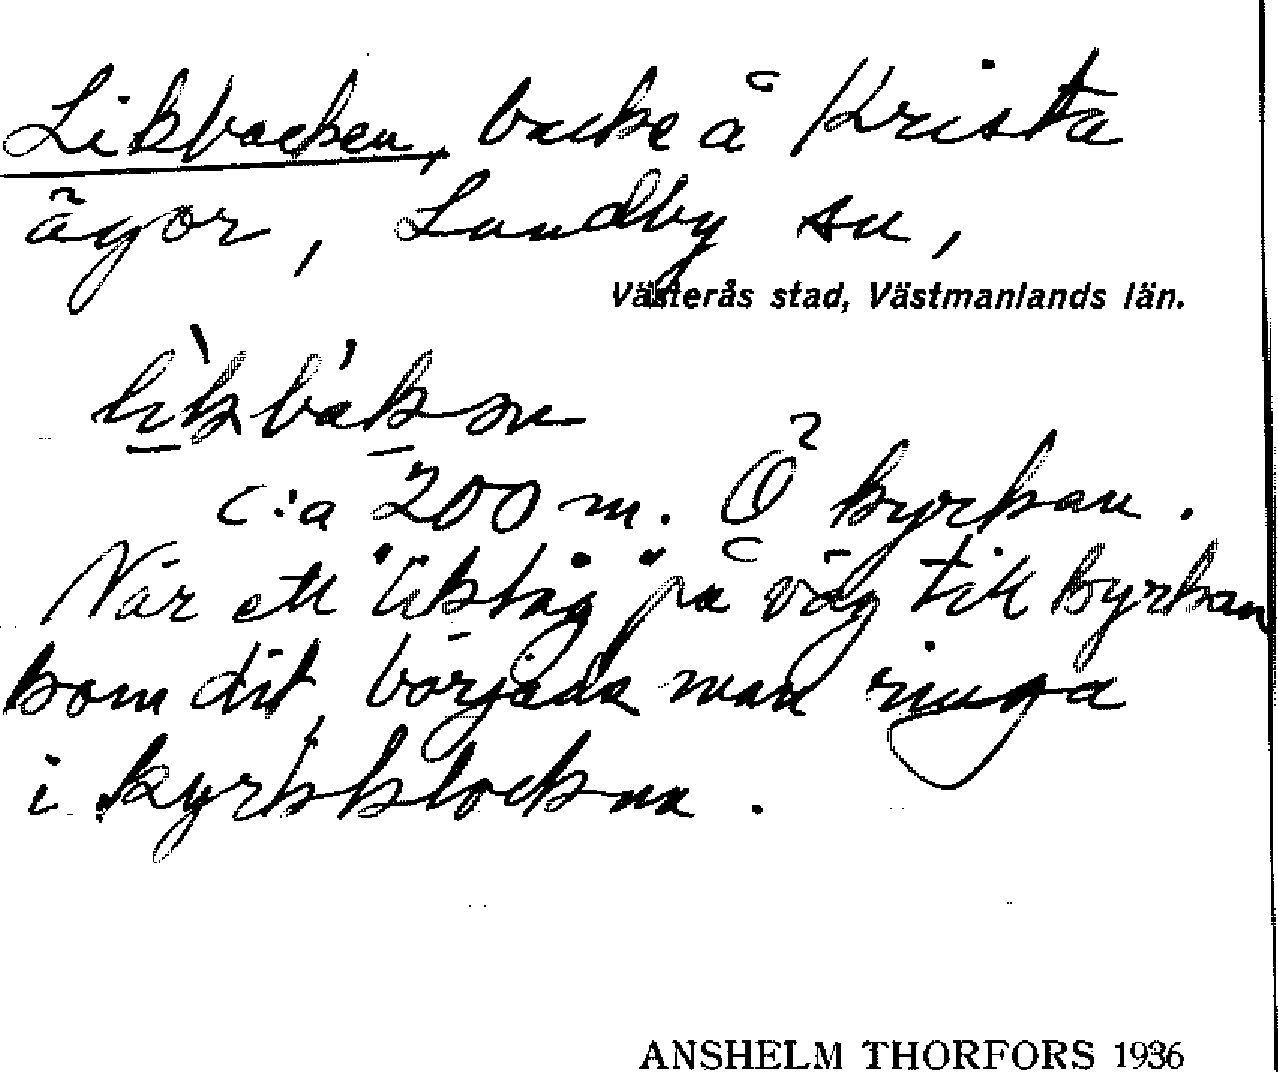 Likbacken, backe å Krista
ägor, Lundby sn,
Västerås stad, Västmanlands län.
li̱kbak̠ən
c:a 200 m. Ö kyrkan.
När ett "liktåg" på väg till kyrkan
kom dit, började man ringa
i kyrkklockna.
ANSHELM THORFORS 1936